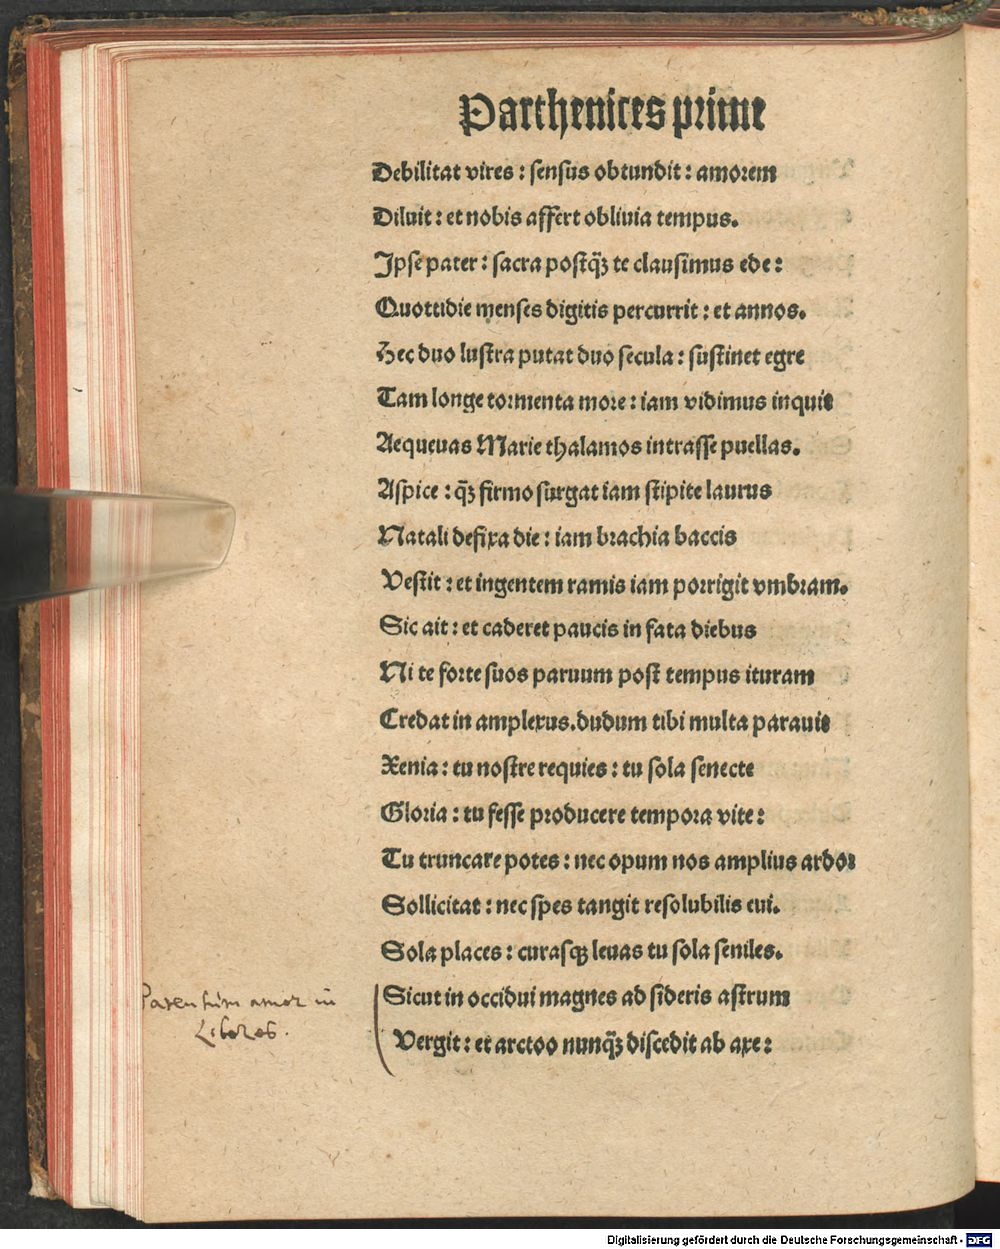 Parthenices prime
Debilitat vires : sensus obtundit : amorem
Diluit : et nobis affert obliuia tempus.
Ipse pater : sacra postqꝫ te clausimus ede :
Quottidie menses digitis percurrit : et annos.
Hec duo lustra putat duo secula : sustinet egre
Tam longe tormenta more : iam vidimus inquit
Aequeuas Marie thalamos intrasse puellas.
Aspice : qꝫ firmo surgat iam stipite laurus
Natali defixa die : iam brachia baccis
Vestit : et ingentem ramis iam porrigit vmbram.
Sic ait : et caderet paucis in fata diebus
Ni te forte suos paruum post tempus ituram
Credat in amplexus. dudum tibi multa parauit
Xenia : tu nostre requies : tu sola senecte
Gloria : tu fesse producere tempora vite :
Tu truncare potes : nec opum nos amplius ardor
Sollicitat : nec spes tangit resolubilis eui.
Sola places : curasqꝫ leuas tu sola seniles.
Sicut in occidui magnes ad sideris astrum
Vergit : et arctoo nunqꝫ discedit ab axe :
Parentum amor in
Liberos.
Digitalisierung gefördert durch die Deutsche Forschungsgemeinschaft - DFG